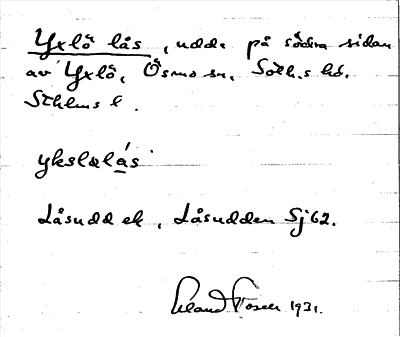 Yxlö lås, udde på södra sidan
av Yxlö, Ösmo sn, Soth.s hd.
Sthlms l.
ykslølås
Låsudd ek, Låsudden Sj 62.
1931.